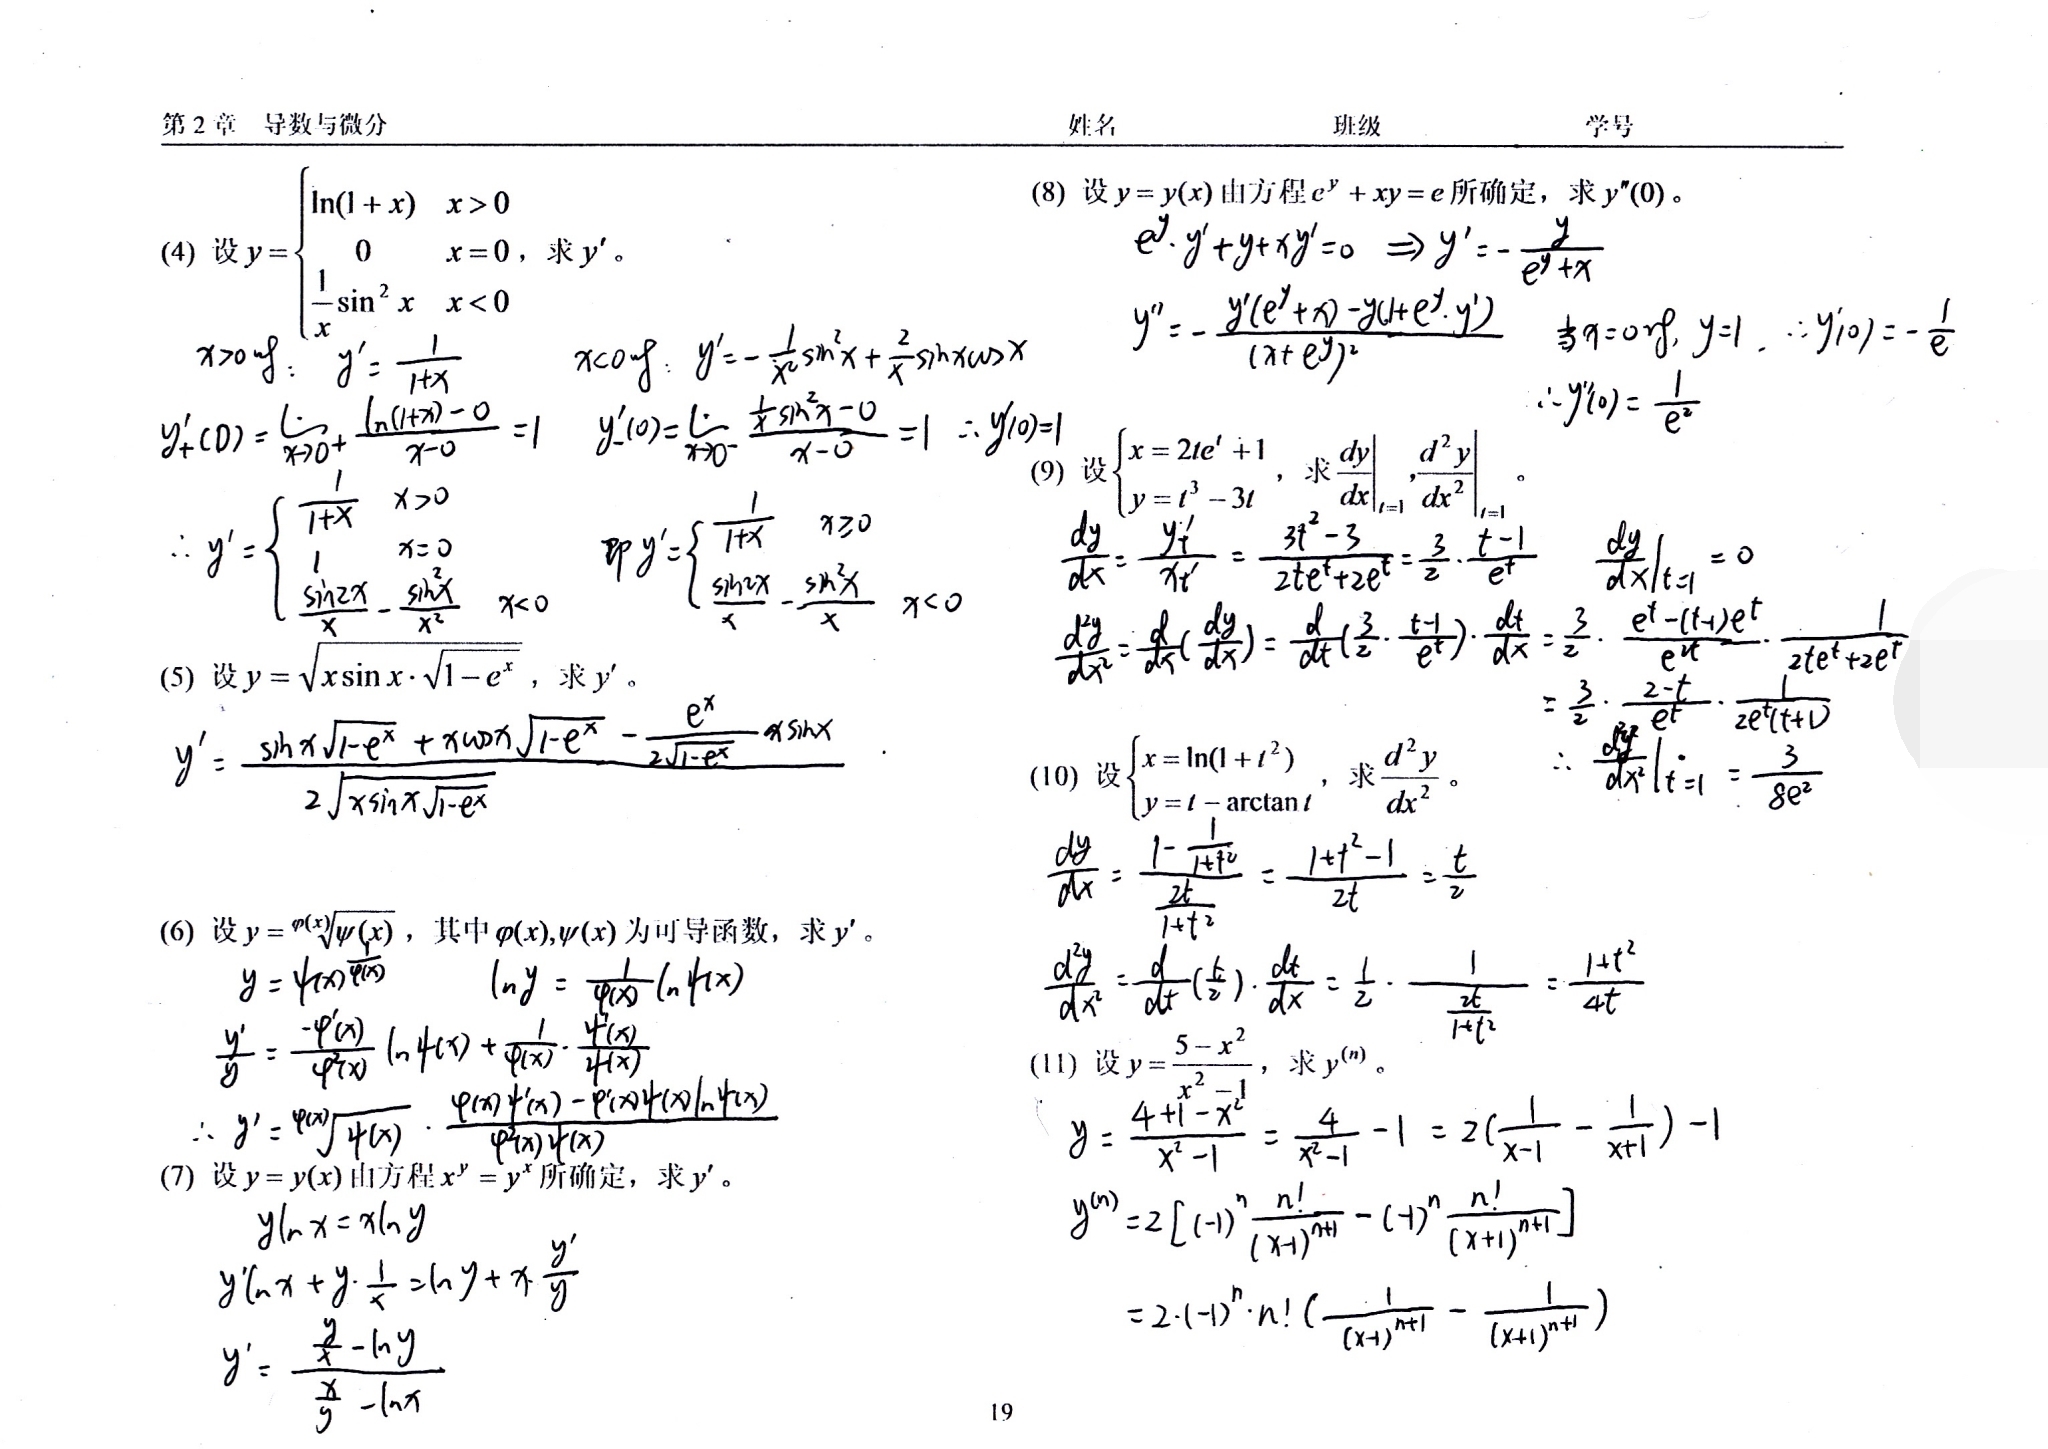 第 2 章 导数与微分 姓名 班级 学号
(4) 设 y = { ln(1+x) x>0
0 x=0 , 求 y′。
1/x sin² x x<0
x>0时: y′ = 1/(1+x) x<0时: y′ = -1/x² sin²x + 2/x sinxcosx
y₊′(0) = lim x→0+ (ln(1+x)-0)/(x-0) = 1 y₋′(0) = lim x→0- (1/x sin²x-0)/(x-0) = 1 ∴ y′(0)=1
∴ y′ = { 1/(1+x) x>0
1 x=0
sin2x/x - sin²x/x² x<0
即 y′ = { 1/(1+x) x≥0
sin2x/x - sin²x/x x<0
(5) 设 y = √(x sin x · √(1-eˣ)) , 求 y′。
y′ = (sinx√(1-eˣ) + xcosx√(1-eˣ) - eˣ/(2√(1-eˣ)) xsinx) / (2√(xsinx√(1-eˣ)))
(6) 设 y = ᵠ⁽ˣ⁾√ψ(x) , 其中 φ(x),ψ(x) 为可导函数, 求 y′。
y = ψ(x)^(1/φ(x)) lny = 1/φ(x) lnψ(x)
y′/y = -φ′(x)/φ²(x) lnψ(x) + 1/φ(x) · ψ′(x)/ψ(x)
∴ y′ = ᵠ⁽ˣ⁾√ψ(x) · (φ(x)ψ′(x) - φ′(x)ψ(x)lnψ(x)) / (φ²(x)ψ(x))
(7) 设 y = y(x) 由方程 xʸ = yˣ 所确定, 求 y′。
ylnx = xlny
y′lnx + y·1/x = lny + x·y′/y
y′ = (y/x - lny) / (x/y - lnx)
(8) 设 y = y(x) 由方程 eʸ + xy = e 所确定, 求 y″(0)。
eʸ·y′ + y + xy′ = 0 ⇒ y′ = - y/(eʸ+x)
y″ = - (y′(eʸ+x) - y(1+eʸ·y′)) / (x+eʸ)² 当x=0时, y=1, ∴ y′(0) = -1/e
∴ y″(0) = 1/e²
(9) 设 { x = 2teᵗ + 1
y = t³ - 3t , 求 dy/dx|t=1 , d²y/dx²|t=1 。
dy/dx = yt′/xt′ = (3t²-3)/(2teᵗ+2eᵗ) = 3/2 · (t-1)/eᵗ dy/dx|t=1 = 0
d²y/dx² = d/dx(dy/dx) = d/dt(3/2 · (t-1)/eᵗ) · dt/dx = 3/2 · (eᵗ-(t-1)eᵗ)/e²ᵗ · 1/(2teᵗ+2eᵗ)
= 3/2 · (2-t)/eᵗ · 1/(2eᵗ(t+1))
∴ d²y/dx²|t=1 = 3/(8e²)
(10) 设 { x = ln(1+t²)
y = t - arctan t , 求 d²y/dx² 。
dy/dx = (1 - 1/(1+t²)) / (2t/(1+t²)) = (1+t²-1)/2t = t/2
d²y/dx² = d/dt(t/2) · dt/dx = 1/2 · 1/(2t/(1+t²)) = (1+t²)/4t
(11) 设 y = (5-x²)/(x²-1) , 求 y⁽ⁿ⁾ 。
y = (4+1-x²)/(x²-1) = 4/(x²-1) - 1 = 2(1/(x-1) - 1/(x+1)) - 1
y⁽ⁿ⁾ = 2[(-1)ⁿ n!/(x-1)ⁿ⁺¹ - (-1)ⁿ n!/(x+1)ⁿ⁺¹]
= 2·(-1)ⁿ·n!(1/(x-1)ⁿ⁺¹ - 1/(x+1)ⁿ⁺¹)
19